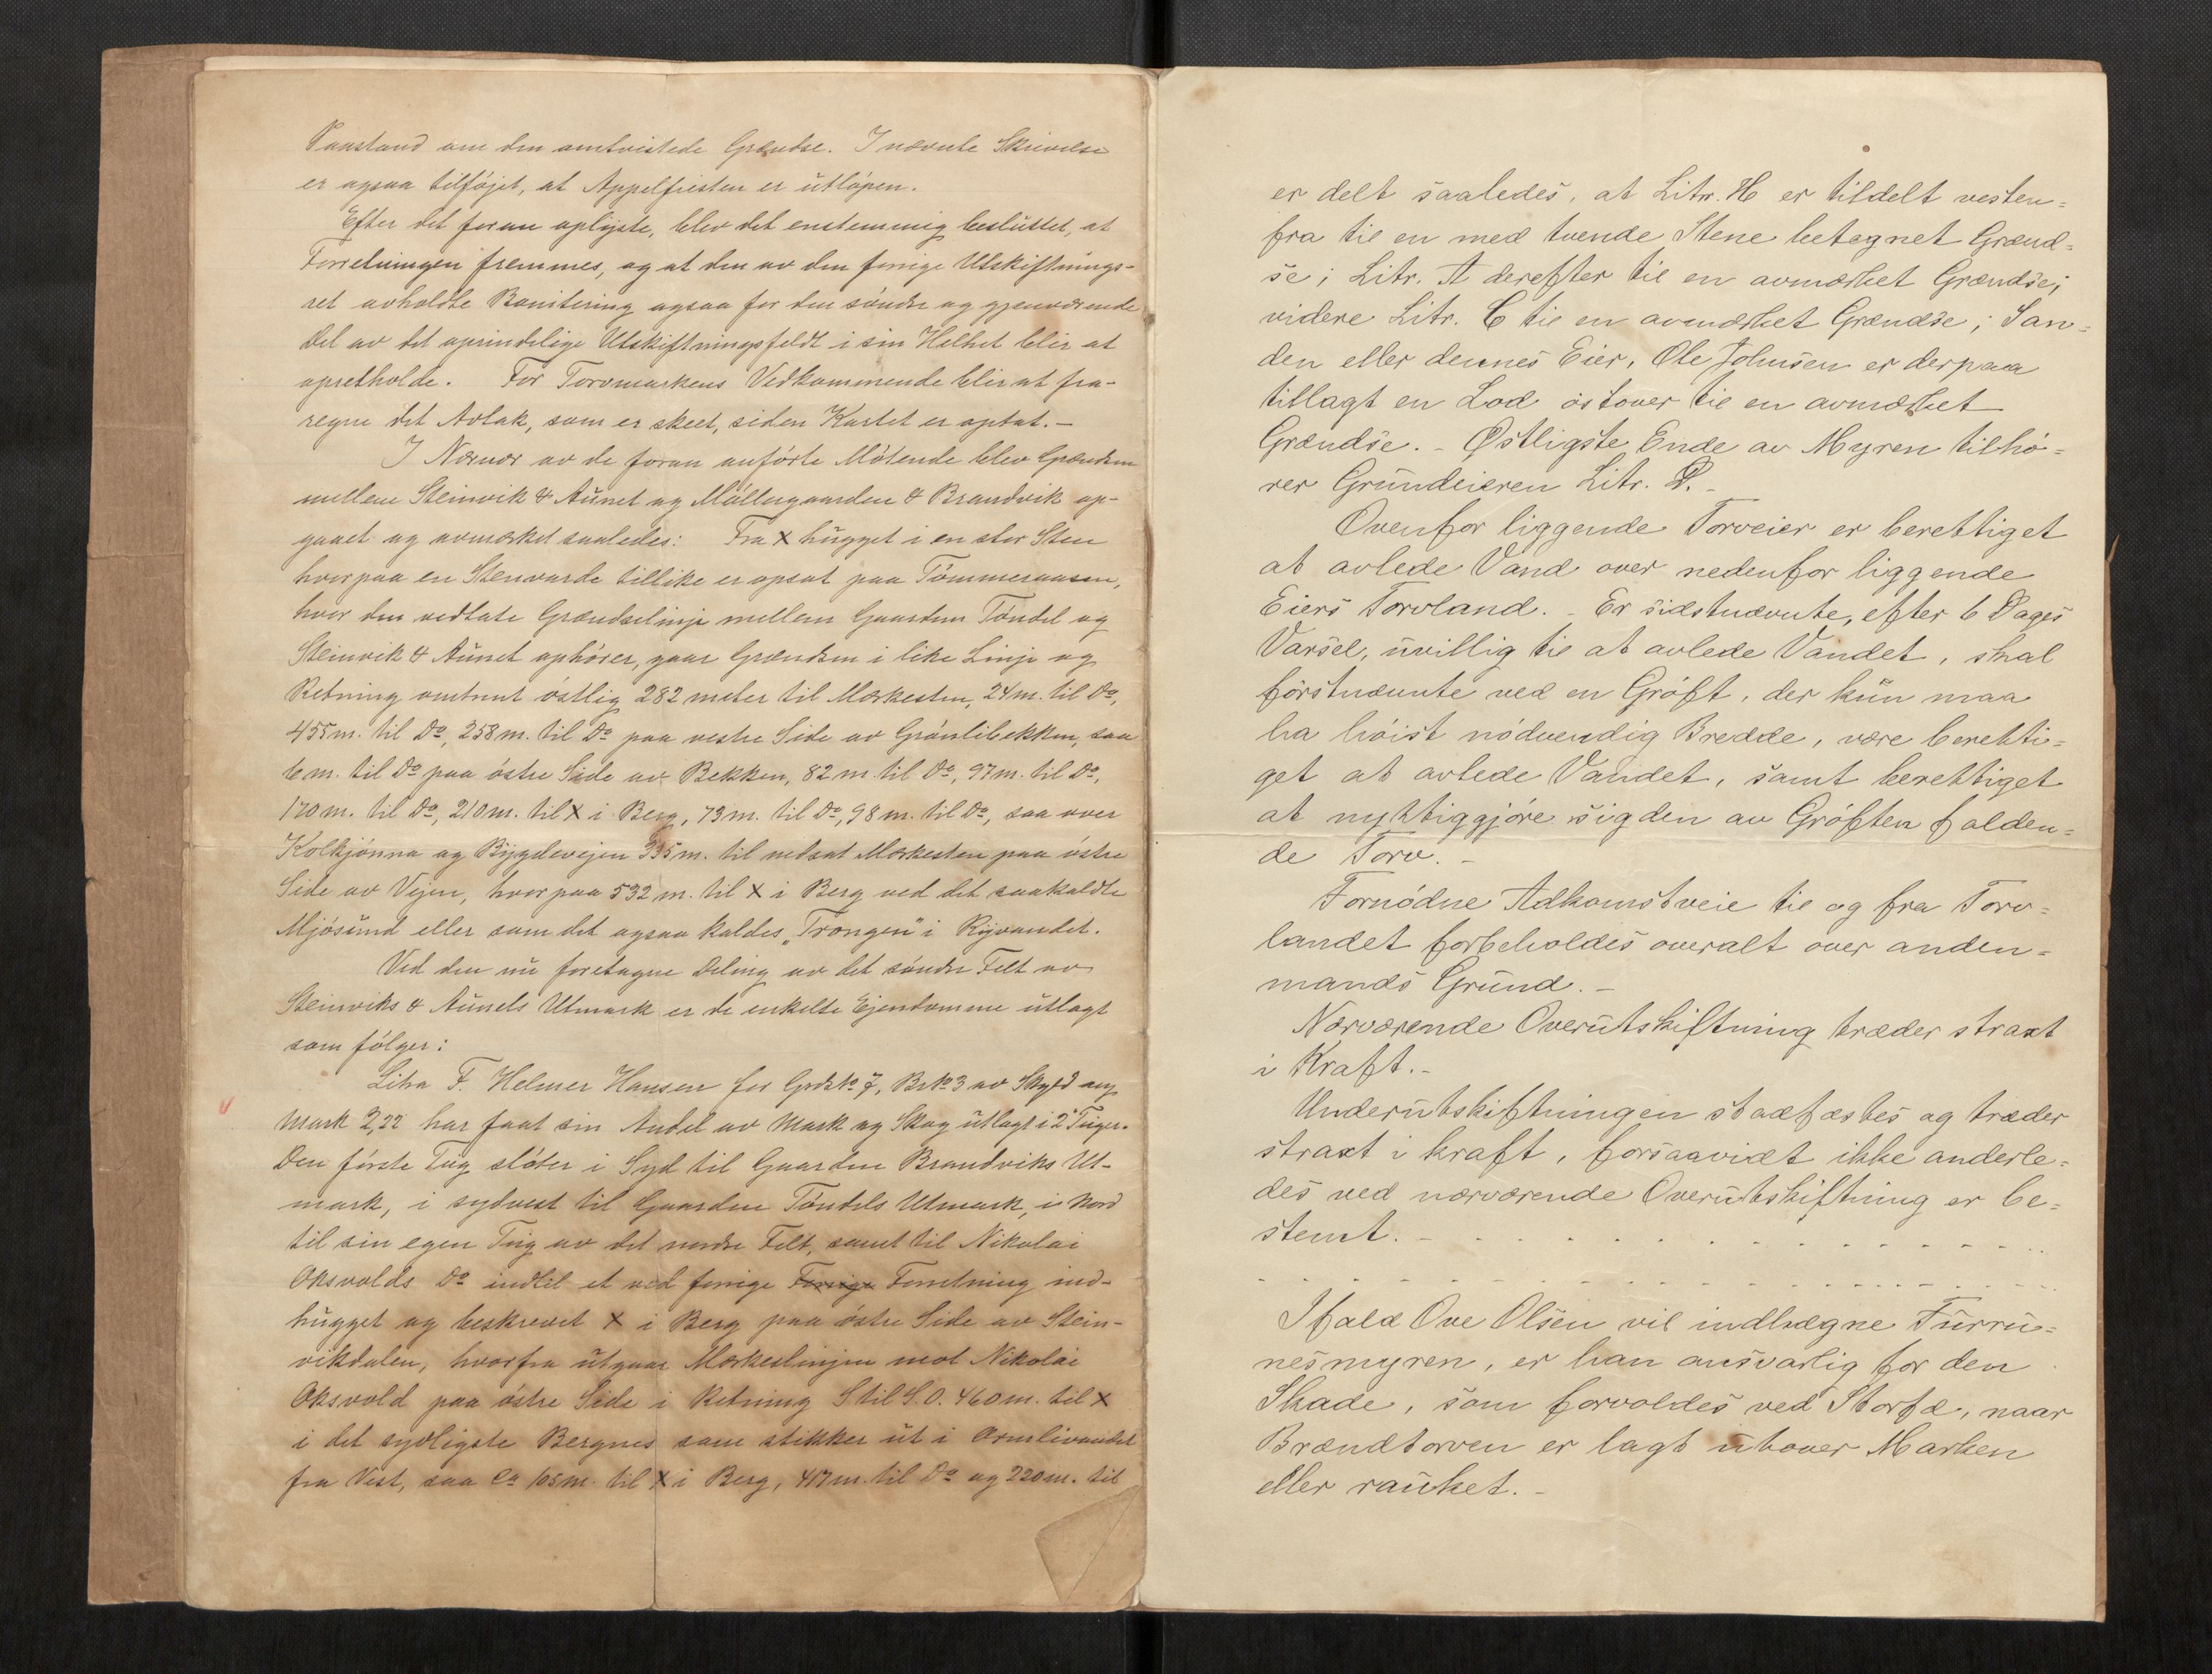 Paastand om den omtvistede Grændse. I nævnte Skrivelse
er ogsaa tilføjet, at Appelfristen er utløpen.
Efter det foran oplyste, blev det enstemmig besluttet, at
Forretningen fremmes, og at den av den forrige Utskiftnings-
ret avholdte Bonitering ogsaa for den søndre og gjenværende
Del av det oprindelige Utskiftningsfeldt i sin Helhet blir at
opretholde. For Torvmarkens Vedkommende blir at fra-
regne det Avtak, som er skeet, siden Kartet er optat. –
I Nærvær av de foran anførte Møtende blev Grændsen
mellem Steinvik & Aunet og Møllergaarden & Brandvik op-
gaaet og avmerket saaledes: Fra X hugget i en stor Sten
hvorpaa en Stenvarde tillike er opsat paa Tømmeraasen,
hvor den vedtate Grændselinje mellem Gaarden Tøndel og
Steinvik & Aunet ophører, gaar Grændsen i like Linje og
Retning omtrent østlig 282 meter til Merkesten, 24 m. til Do,
455 m. til Do, 258 m. til Do paa vestre Side av Grønlibekken, saa
6 m. til Do paa østre Side av Bekken, 82 m. til Do, 97 m. til Do,
170 m. til Do, 210 m. til X i Berg, 73 m. til Do, 98 m. til Do, saa over
Kolkjønna og Bygdevejen 335 m. til nedsat Merkesten paa østre
Side av Vejen, hvorpaa 532 m. til X i Berg ved det saakaldte
Mjøsund eller som det ogsaa kaldes „Trongen" i Ryvandet.
Ved den nu foretagne Deling av det søndre Felt av
Steinviks & Aunets Utmark er de enkelte Ejendomme utlagt
som følger:
Litra F. Helmer Hansen for Grdsko 7, Brko 3 av Skyld
Mark 2,22 har faat sin Andel av Mark og Skog utlagt i 2 Teiger.
Den første Teig støter i Syd til Gaarden Brandviks Ut-
mark, i sydvest til Gaarden Tøndels Utmark, i Nord
til sin egen Teig av det nordre Felt, samt til Nikolai
Oksvolds Do indtil et ved forrige Forrige Forretning ind-
hugget og beskrevet X i Berg paa østre Side av Stein-
vikdalen, hvorfra utgaar Merkeslinjen mot Nikolai
Oksvold paa østre Side i Retning S til S.O. 460 m. til X
i det sydligste Bergnes som stikker ut i Ormlivandet
fra Vest, saa Ca 105 m. til X i Berg, 417 m. til Do og 220 m. til
er delt saaledes, at Litr. H er tildelt vesten=
fra til en med tvende Stene betegnet Grænd=
se; Litr. A derefter til en avmærket Grændse;
videre Litr. C til en avmærket Grændse; San=
den eller dennes Eier, Ole Johnsen er derpaa
tillagt en Lod østover til en avmærket
Grændse. – Østligste Ende av Myren tilhø=
rer Grundeieren Litr. D. –
Ovenfor liggende Torveier er berettiget
at avlede Vand over nedenfor liggende
Eiers Torvland. – Er sidstnævnte, efter 6 Dages
Varsel, uvillig til at avlede Vandet, skal
førstnævnte ved en Grøft, der kun maa
ha høist nødvendig Bredde, være beretti=
get at avlede Vandet, samt berettiget
at nyttiggjøre sig den av Grøften falden=
de Torv. –
Fornødne Adkomstveie til og fra Torv=
landet forbeholdes overalt over anden=
mands Grund. –
Nærværende Overutskiftning træder straxt
i Kraft. –
Underutskiftningen stadfæstes og træder
straxt i kraft, forsaavidt ikke anderle=
des ved nærværende Overutskiftning er be=
stemt. – - - - - - - - - - - - - -
- - - - - - - - - - - - - - - - - -
Ifald Ove Olsen vil indhegne Furru=
nesmyren, er han ansvarlig for den
Skade, som forvoldes ved Storfæ, naar
Brændtorven er lagt utover Marken
eller rauket. –